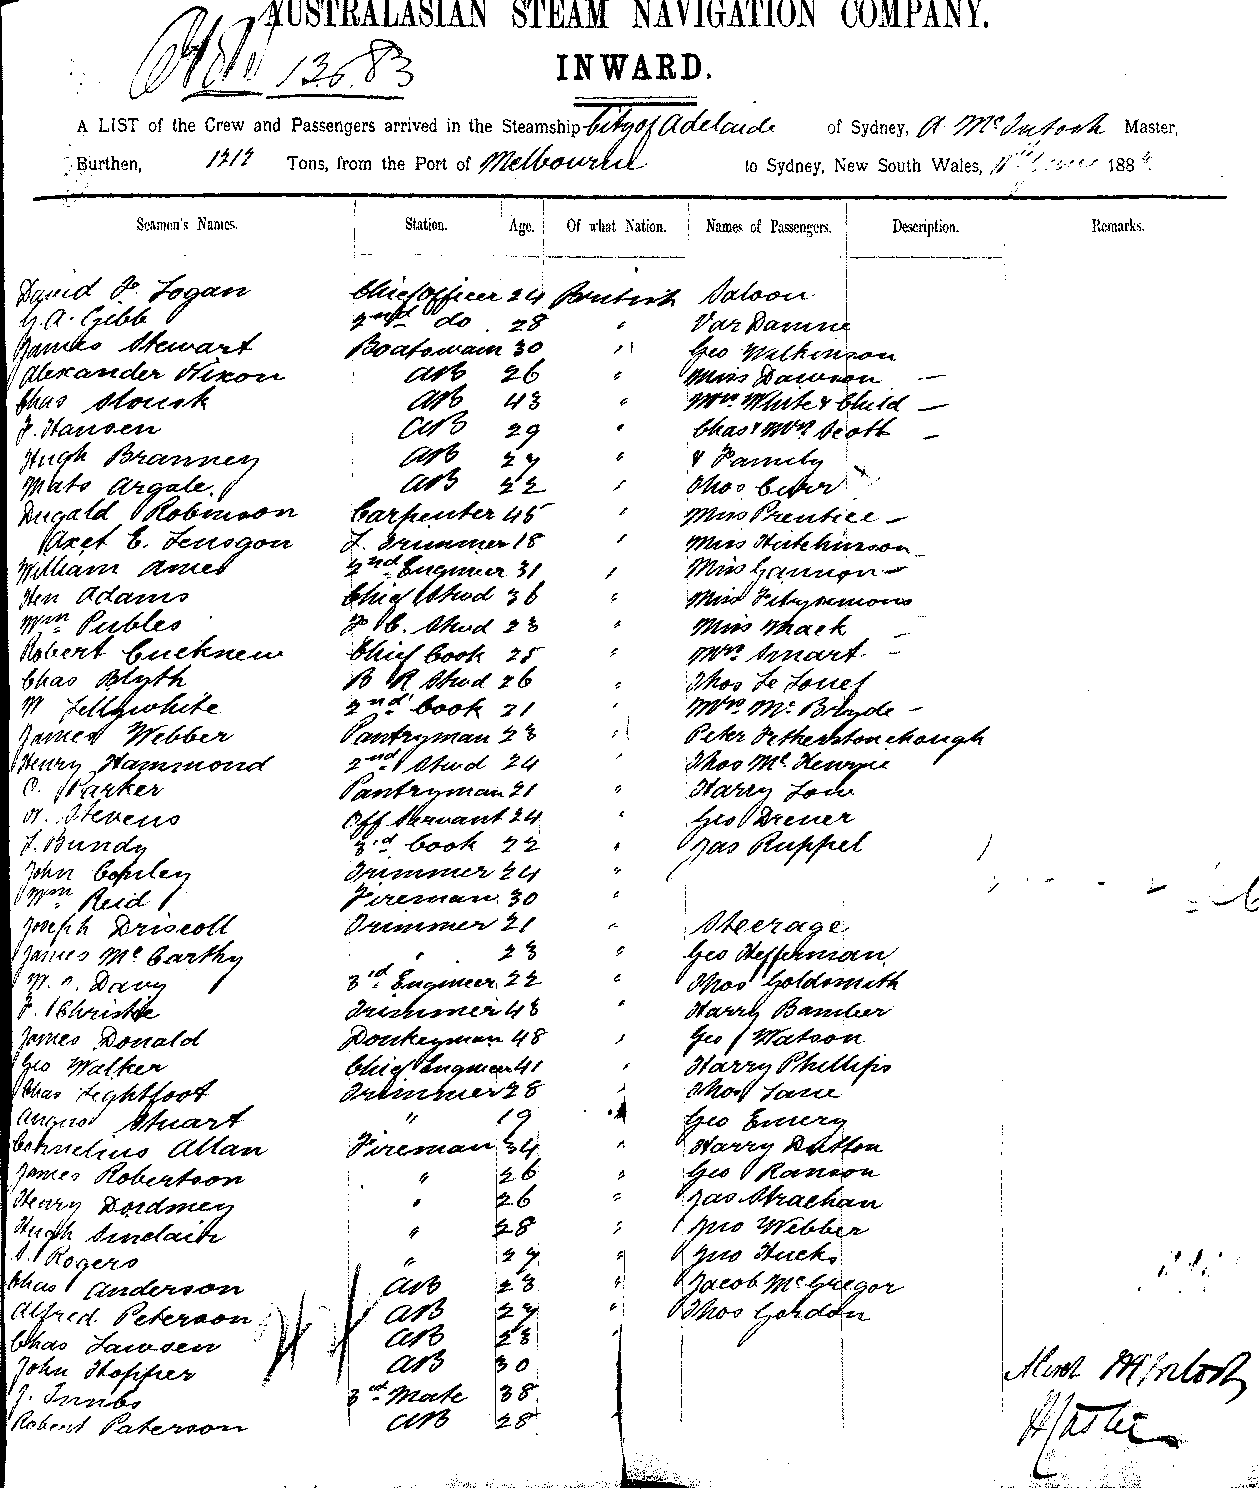 AUSTRALASIAN STEAM NAVIGATION COMPANY.
13.6.83
INWARD.
A LIST of the Crew and Passengers arrived in the Steamship City of Adelaide of Sydney, A McIntosh Master,
Burthen, 1212 Tons, from the Port of Melbourne to Sydney, New South Wales, 188
Seamen's Names. Station. Age. Of what Nation. Names of Passengers. Description. Remarks.
David F. Logan Chief Officer 24 British Saloon
G. A. Gibb 2nd do. 28 " Var Damme
James Stewart Boatswain 30 " Geo Wilkinson
Alexander Nixon AB 26 " Miss Dawson —
Chas AB 43 " Mrs White & Child —
J. Hansen AB 29 " Chas & Mrs Scott —
Hugh Branney AB 27 " & Family
Mats Argale. AB 22 " Thos Curr
Dugald Robinson Carpenter 45 " Miss Prentice —
Axet E. L. Trimmer 18 " Miss Hutchinson —
William Ames 2nd Engineer 31 " Miss Gannon —
Hen Adams Chief Stwd 36 " Miss Fitzsimmons
Wm Peebles F C. Stwd 23 " Miss Mack —
Robert Chief Cook 25 " Mrs Smart —
Chas Blyth B R Stwd 26 " Thos Le Souef
W Lellywhite 2nd Cook 21 " Mrs McBryde —
James Webber Pantryman 23 " Peter Fetherstonehaugh
Henry Hammond 2nd Stwd 24 " Thos McHenzie
C. Parker Pantryman 21 " Harry Low
W. Stevens Off Servant 24 " Geo Drener
J. Bundy 3rd Cook 22 " Jas Ruppel
John Copley Trimmer 24 "
Wm Reid Fireman 30 "
Joseph Driscoll Trimmer 21 " Steerage
James McCarthy " 23 " Geo Hefferman
W. Davy 3rd Engineer 22 " Thos Goldsmith
J. Christie Trimmer 43 " Harry Bamber
James Donald Donkeyman 48 " Geo Watson
Geo Walker Chief Engineer 41 " Harry Phillips
Chas Lightfoot Trimmer 28 " Thos Lane
Angus Stuart " 19 " Geo Emery
Cornelius Allan Fireman 34 " Harry Dutton
James Robertson " 26 " Geo Ranson
Henry Dordmey " 26 " Jas Strachan
Hugh Sinclair " 28 " Jno Webber
Rogers " 27 " Jno Hucks
Chas Anderson AB 23 " Jacob McGregor
Alfred Peterson AB 27 " Thos Gordon
Chas Lawsen AB 23 "
John Hopper AB 30
J. Innbs 3rd Mate 38
Robert Paterson AB 28
McIntosh
Master